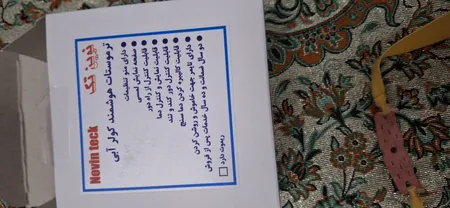 نوین تک Novin teck
ترموستات هوشمند کولر آبی
● دارای منو تنظیمات
● صفحه نمایش لمسی
● قابلیت کنترل از راه دور
● قابلیت نمایش و کنترل دما
● قابلیت کنترل دور کند و تند
● قابلیت کالیبره کردن دما سنج
● دارای تایمر جهت خاموش و روشن کردن
● دو سال ضمانت و ده سال خدمات پس از فروش
ریموت دارد